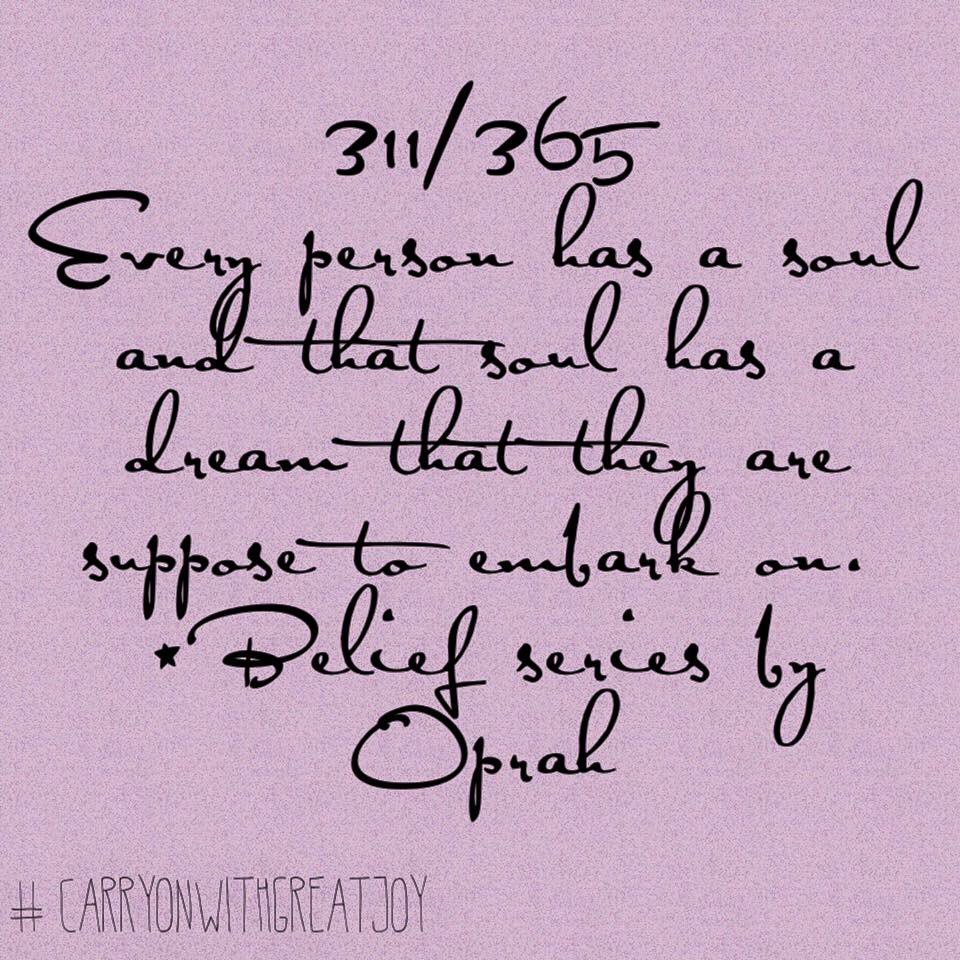 311/365
Every person has a soul
and that soul has a
dream that they are
suppose to embark on.
★Belief series by
Oprah
# CARRYONWITHGREATJOY